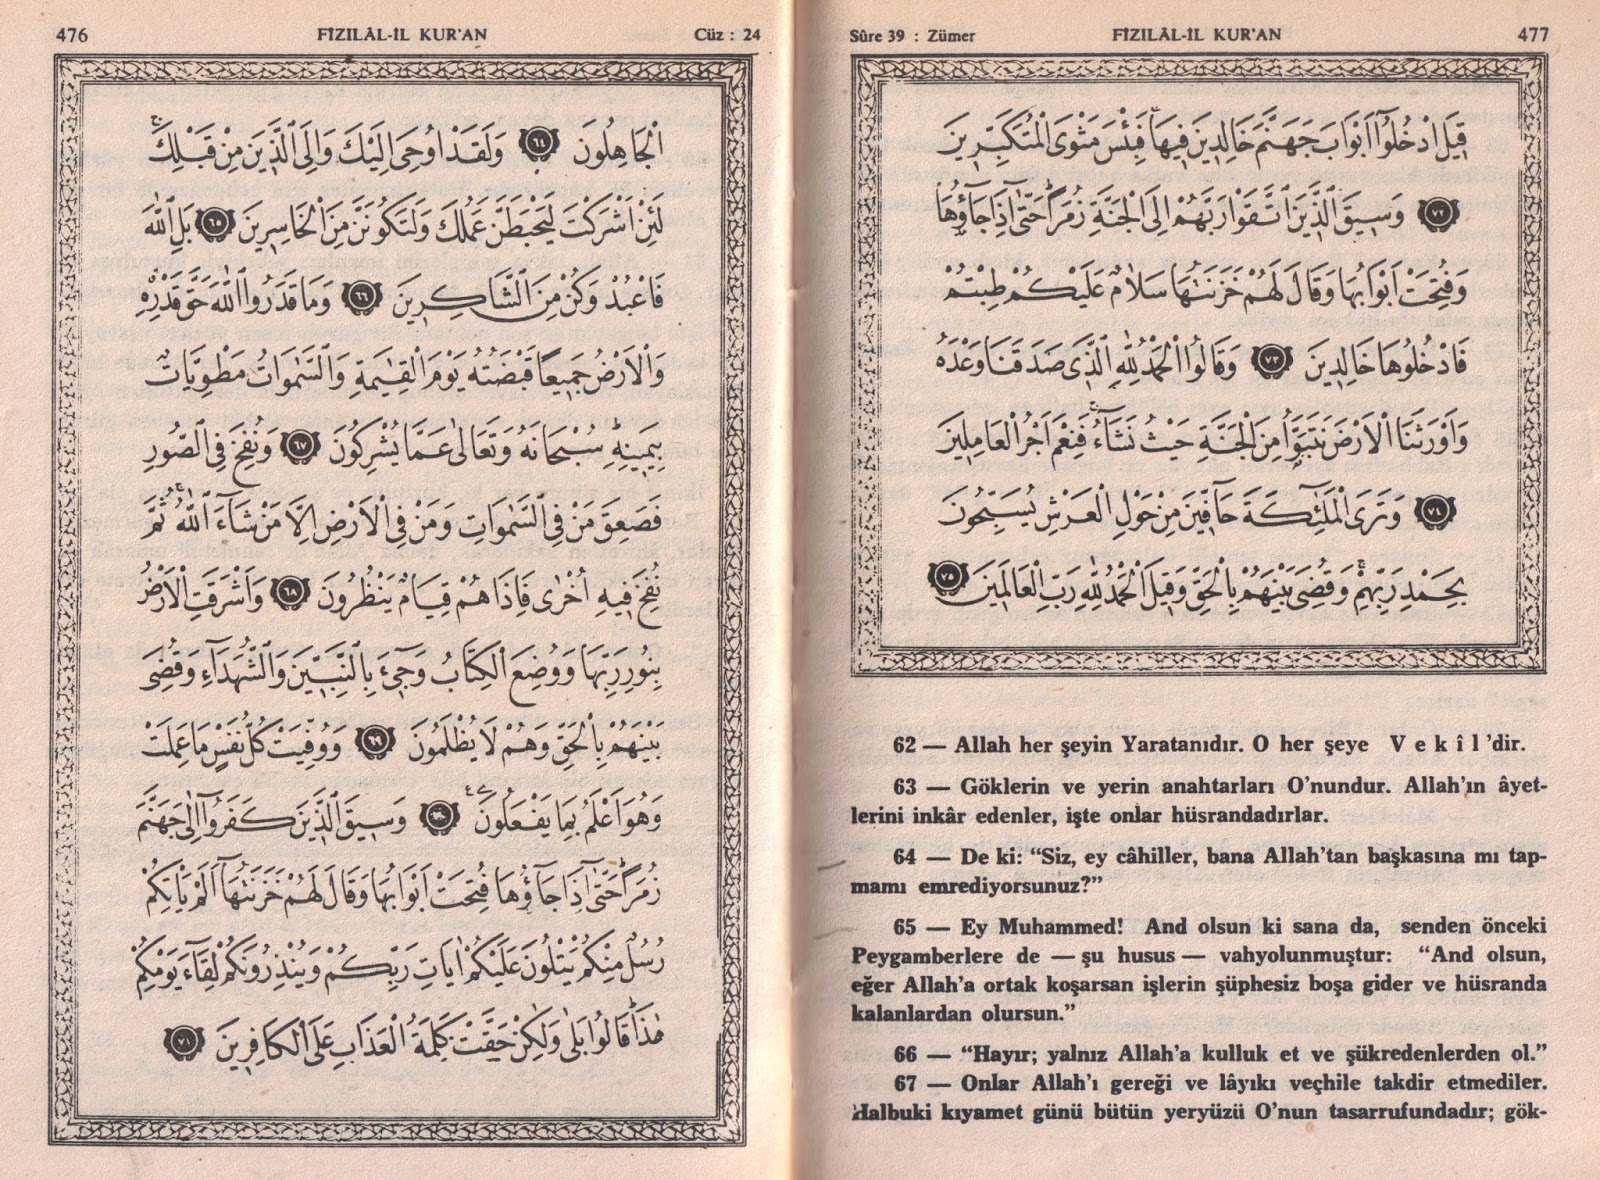 476 FÎZILÂL-İL KUR'AN Cüz : 24
الْجَاهِلُونَ ﴿٦٤﴾ وَلَقَدْ اُوحِىَ اِلَيْكَ وَاِلَى الَّذٖينَ مِنْ قَبْلِكَۚ
لَئِنْ اَشْرَكْتَ لَيَحْبَطَنَّ عَمَلُكَ وَلَتَكُونَنَّ مِنَ الْخَاسِرٖينَ ﴿٦٥﴾ بَلِ اللّٰهَ
فَاعْبُدْ وَكُنْ مِنَ الشَّاكِرٖينَ ﴿٦٦﴾ وَمَا قَدَرُوا اللّٰهَ حَقَّ قَدْرِهٖ
وَالْاَرْضُ جَمٖيعًا قَبْضَتُهُ يَوْمَ الْقِيٰمَةِ وَالسَّمٰوَاتُ مَطْوِيَّاتٌ
بِيَمٖينِهٖ سُبْحَانَهُ وَتَعَالٰى عَمَّا يُشْرِكُونَ ﴿٦٧﴾ وَنُفِخَ فِى الصُّورِ
فَصَعِقَ مَنْ فِى السَّمٰوَاتِ وَمَنْ فِى الْاَرْضِ اِلَّا مَنْ شَاءَ اللّٰهُ ثُمَّ
نُفِخَ فٖيهِ اُخْرٰى فَاِذَا هُمْ قِيَامٌ يَنْظُرُونَ ﴿٦٨﴾ وَاَشْرَقَتِ الْاَرْضُ
بِنُورِ رَبِّهَا وَوُضِعَ الْكِتَابُ وَجٖىءَ بِالنَّبِيّٖنَ وَالشُّهَدَاءِ وَقُضِىَ
بَيْنَهُمْ بِالْحَقِّ وَهُمْ لَا يُظْلَمُونَ ﴿٦٩﴾ وَوُفِّيَتْ كُلُّ نَفْسٍ مَا عَمِلَتْ
وَهُوَ اَعْلَمُ بِمَا يَفْعَلُونَ ﴿٧٠﴾ وَسٖيقَ الَّذٖينَ كَفَرُوا اِلٰى جَهَنَّمَ
زُمَرًا حَتّٰى اِذَا جَاؤُهَا فُتِحَتْ اَبْوَابُهَا وَقَالَ لَهُمْ خَزَنَتُهَا اَلَمْ يَاْتِكُمْ
رُسُلٌ مِنْكُمْ يَتْلُونَ عَلَيْكُمْ اٰيَاتِ رَبِّكُمْ وَيُنْذِرُونَكُمْ لِقَاءَ يَوْمِكُمْ
هٰذَا قَالُوا بَلٰى وَلٰكِنْ حَقَّتْ كَلِمَةُ الْعَذَابِ عَلَى الْكَافِرٖينَ ﴿٧١﴾
Sûre 39 : Zümer FÎZILÂL-İL KUR'AN 477
قٖيلَ ادْخُلُوا اَبْوَابَ جَهَنَّمَ خَالِدٖينَ فٖيهَا فَبِئْسَ مَثْوَى الْمُتَكَبِّرٖينَ
﴿٧٢﴾ وَسٖيقَ الَّذٖينَ اتَّقَوْا رَبَّهُمْ اِلَى الْجَنَّةِ زُمَرًا حَتّٰى اِذَا جَاؤُهَا
وَفُتِحَتْ اَبْوَابُهَا وَقَالَ لَهُمْ خَزَنَتُهَا سَلَامٌ عَلَيْكُمْ طِبْتُمْ
فَادْخُلُوهَا خَالِدٖينَ ﴿٧٣﴾ وَقَالُوا الْحَمْدُ لِلّٰهِ الَّذٖى صَدَقَنَا وَعْدَهُ
وَاَوْرَثَنَا الْاَرْضَ نَتَبَوَّاُ مِنَ الْجَنَّةِ حَيْثُ نَشَاءُ فَنِعْمَ اَجْرُ الْعَامِلٖينَ
﴿٧٤﴾ وَتَرَى الْمَلٰئِكَةَ حَافّٖينَ مِنْ حَوْلِ الْعَرْشِ يُسَبِّحُونَ
بِحَمْدِ رَبِّهِمْ وَقُضِىَ بَيْنَهُمْ بِالْحَقِّ وَقٖيلَ الْحَمْدُ لِلّٰهِ رَبِّ الْعَالَمٖينَ ﴿٧٥﴾
62 — Allah her şeyin Yaratanıdır. O her şeye V e k î l 'dir.
63 — Göklerin ve yerin anahtarları O'nundur. Allah'ın âyet-
lerini inkâr edenler, işte onlar hüsrandadırlar.
64 — De ki: "Siz, ey câhiller, bana Allah'tan başkasına mı tap-
mamı emrediyorsunuz?"
65 — Ey Muhammed! And olsun ki sana da, senden önceki
Peygamberlere de — şu husus — vahyolunmuştur: "And olsun,
eğer Allah'a ortak koşarsan işlerin şüphesiz boşa gider ve hüsranda
kalanlardan olursun."
66 — "Hayır; yalnız Allah'a kulluk et ve şükredenlerden ol."
67 — Onlar Allah'ı gereği ve lâyıkı veçhile takdir etmediler.
Halbuki kıyamet günü bütün yeryüzü O'nun tasarrufundadır; gök-